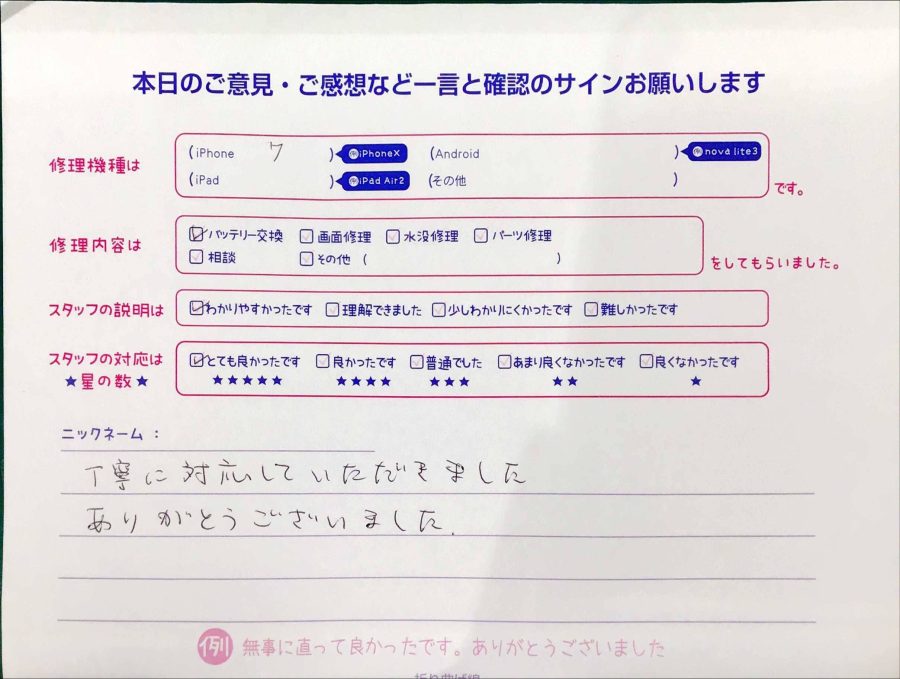 本日のご意見・ご感想など一言と確認のサインお願いします
修理機種は
(iPhone 7 ) 例iPhoneX (Android ) 例nova lite3
(iPad ) 例iPad Air2 (その他 ) です。
修理内容は
☑バッテリー交換 □画面修理 □水没修理 □パーツ修理
□相談 □その他 ( ) をしてもらいました。
スタッフの説明は ☑わかりやすかったです □理解できました □少しわかりにくかったです □難しかったです
スタッフの対応は ☑とても良かったです □良かったです □普通でした □あまり良くなかったです □良くなかったです
★星の数★ ★★★★★ ★★★★ ★★★ ★★ ★
ニックネーム：
丁寧に対応していただきました
ありがとうございました.
例 無事に直って良かったです。ありがとうございました